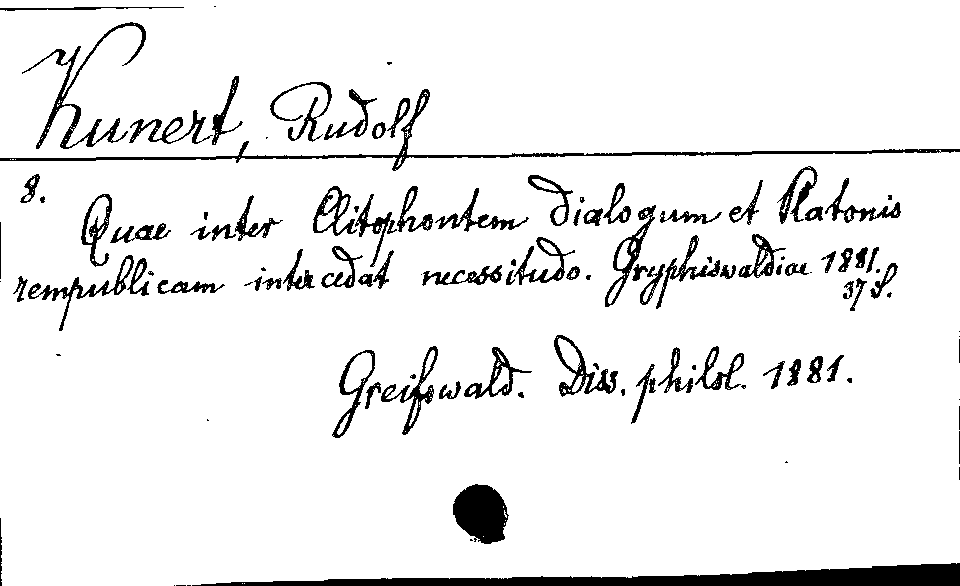 Kunert, Rudolf
8.
Quae inter Clitophontem dialogum et Platonis
rempublicam intercedat necessitudo. Gryphiswaldiae 1881.
37 S.
Greifswald. Diss. philol. 1881.